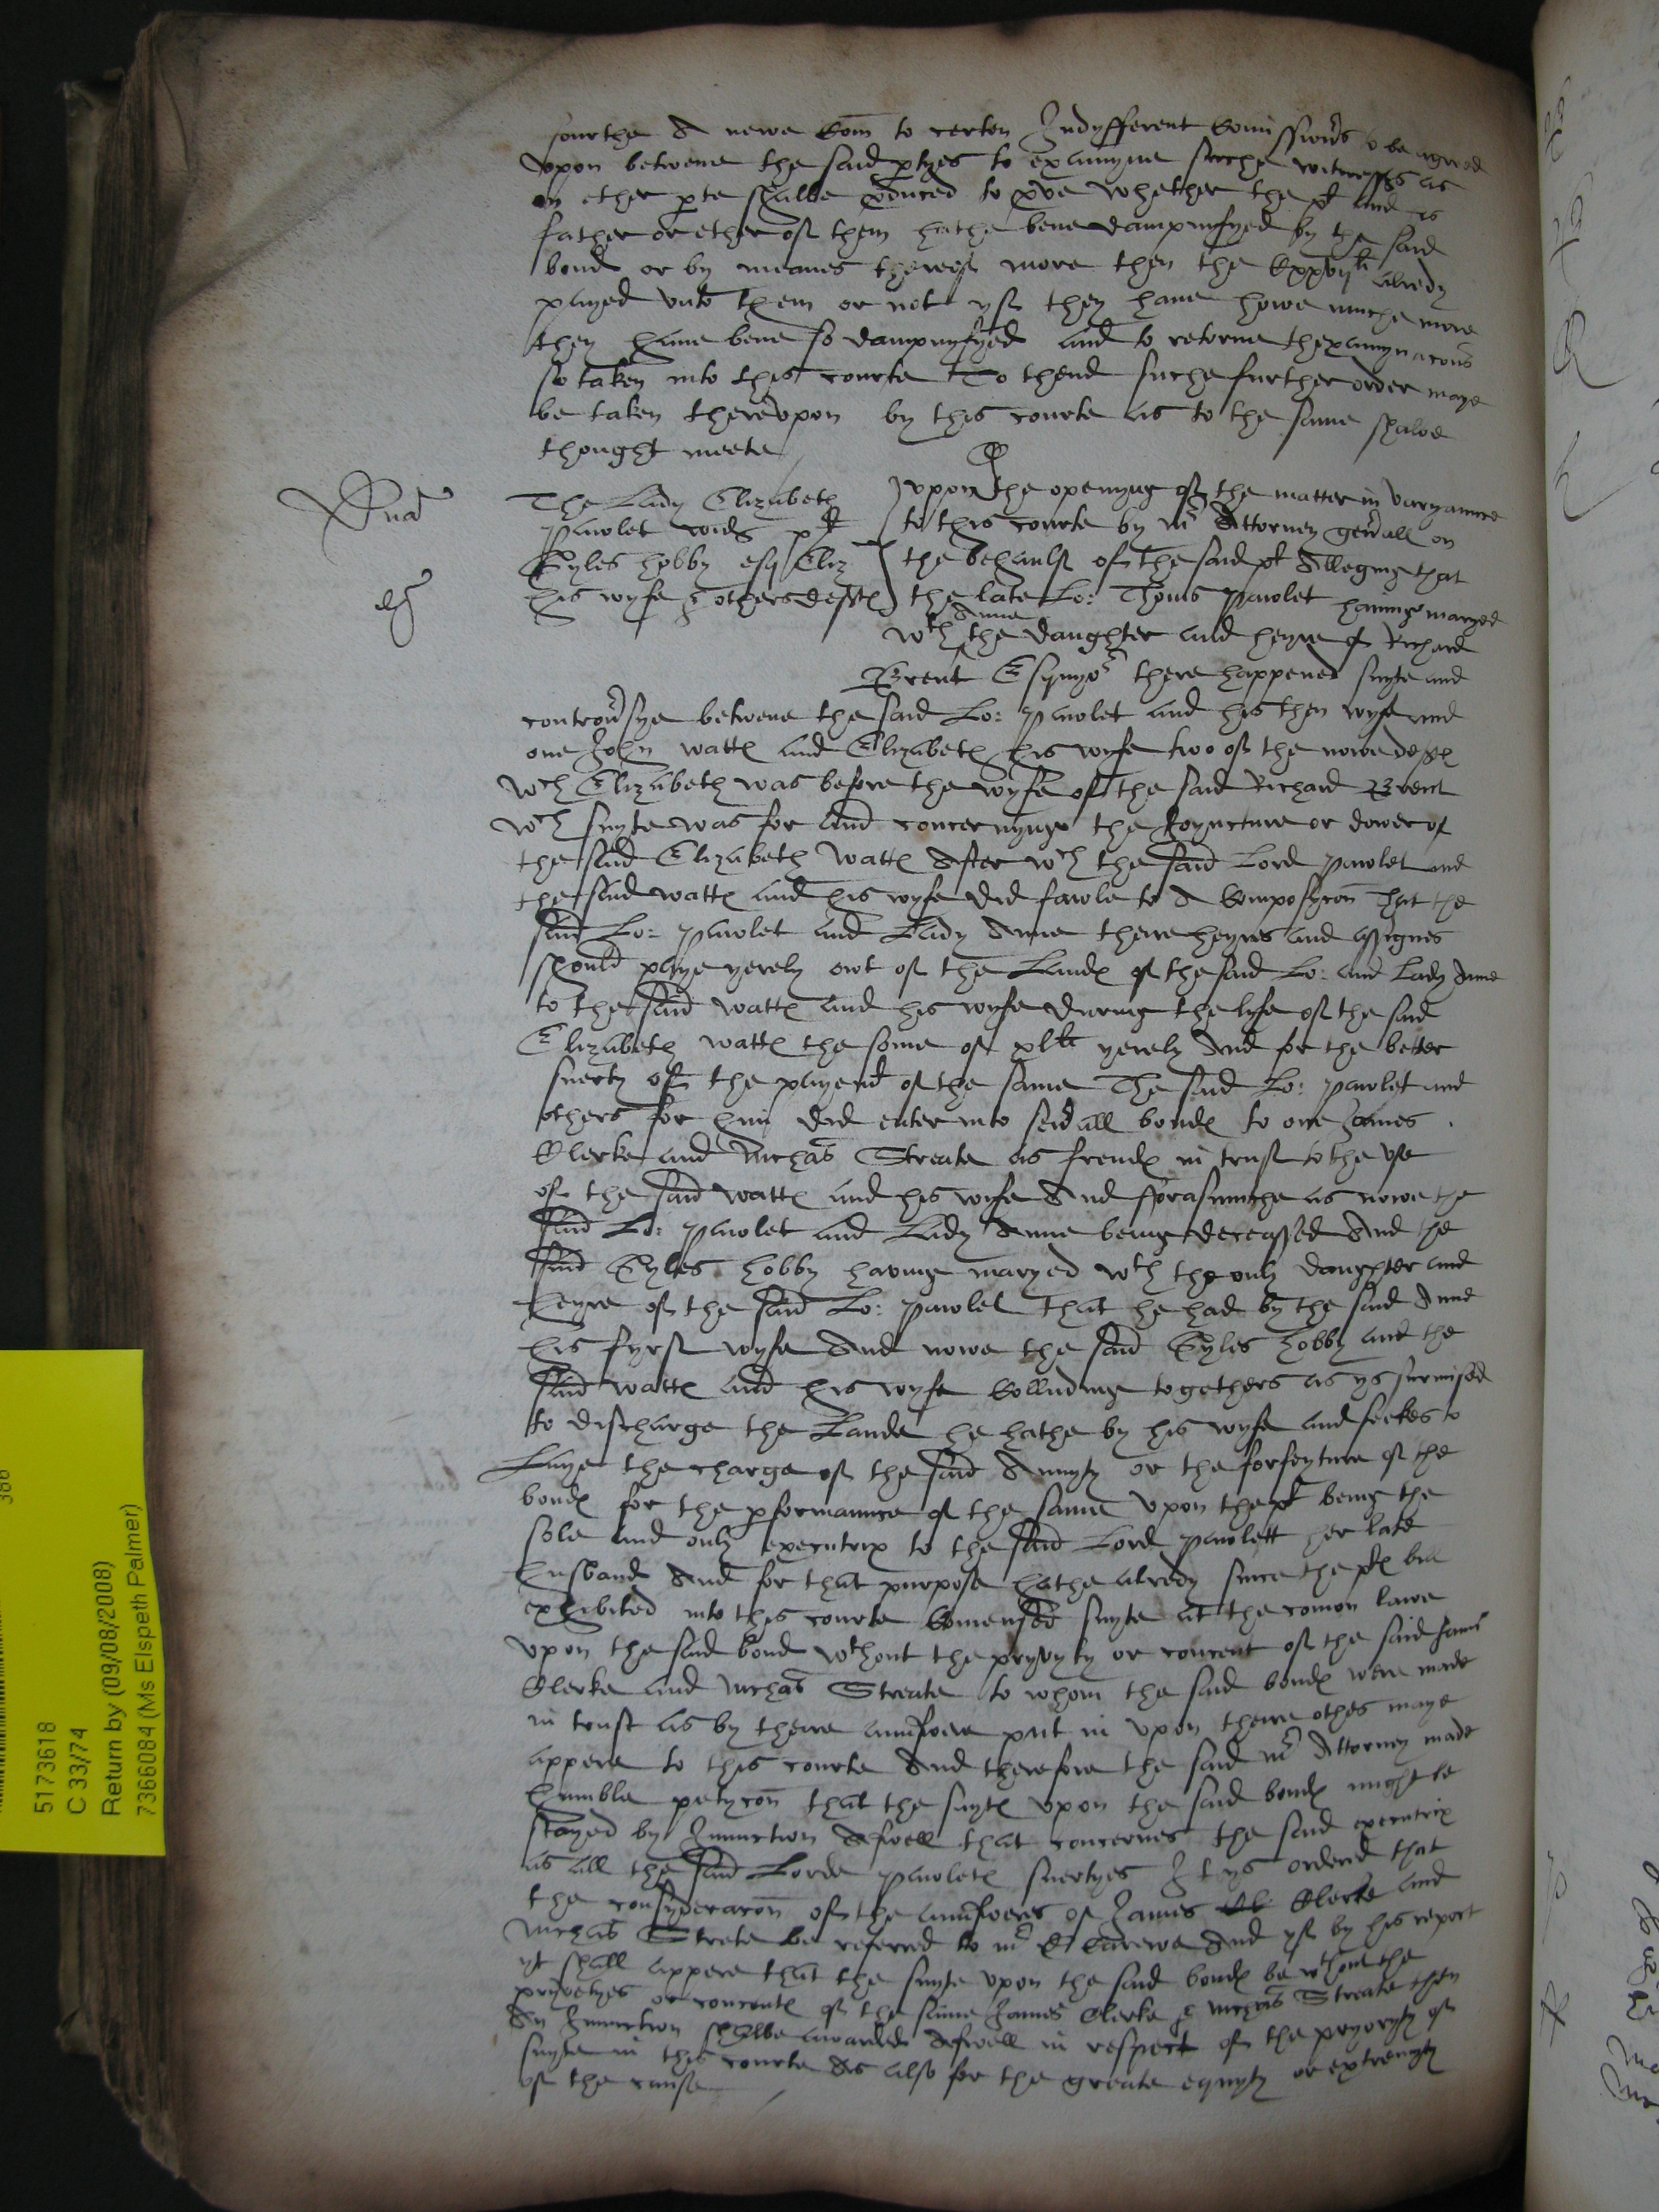 fourthe A newe Com to certen Indyfferent Comissionrs to be agreed
upon betwene the said ptyes to examyne suche witnesses as
on ether pte shalbe pduced to prve whether the pt and is
father or ether of them hathe bene dampnifyed by the said
bond or by meanes thereof more then the alredy
payed unto them or not yf they have howe muche more
they have bene so dampnyfyed and to retorne thexamynacons
so taken into this courte To thend suche further order maye
be taken thereupon by this courte as to the same shalbe
thought meete
The Lady Elizabeth
Pawlet wid pt
Gyles Hobby esq Eliz
his wyfe & others deftes
Upon the openyng of the matter in varyaunce
to this courte by mr Attorney genrall on
the behaulf of the said pt Alleging that
the late Lo: Thoms Pawlet having maryed
wth Anne the daughter and heyre of Richard
Brent Esquyor there happened suyte and
controvrsye betwene the said Lo: Pawlet and his then wyfe and
one John Wattes and Elizabeth his wyfe two of the nowe deftes
wch Elizabeth was before the wyfe of the said Richard Brent
wch suyte was for and concernynge the Joyncture or dower of
the said Elizabeth Wattes After wch the said Lord Pawlet and
the said Wattes and his wyfe did fawle to A Composycon That the
said Lo: Pawlet and Lady Anne there heyres and assignes
should paye yerely owt of the Landes of the said Lo: and Lady Anne
to the said Wattes and his wyfe during the lyfe of the said
Elizabeth Wattes the some of xlli yerely And for the better
suerty of the payemt of the same The said Lo: Pawlet and
others for him did enter into sevrall bondes to one James
Clerke and Nichas Streate as frendes in trust to the use
of the said Wattes and his wyfe And Forasmuche as nowe the
said Lo: Pawlet and Lady Anne being deceassed And the
said Gyles Hobby having maryed wth the only daughter and
heyre of the said Lo: Pawlet that he had by the said Anne
his fyrst wyfe And nowe the said Gyles Hobby and the
said Wattes and his wyfe Colluding togethers as ys surmised
to discharge the Lande he hathe by his wyfe and seekes to
Laye the charge of the said Anuyty or the forfeyture of the
bondes for the pformaunce of the same upon the pt being the
sole and only executrix to the said Lord Pawlett her late
husband And for that purpose hathe alredy since the ptes bill
exhibited into this courte Comensed suyte at the comon lawe
upon the said bond wthout the pryvyty or concent of the said James
Clerke and Nichas Streate to whom the said bondes were made
in trust as by there aunswere put in upon there othes maye
appere to this courte And therefore the said mr Attorney made
humble petycon that the suytes upon the said bondes might be
stayed by Iniunction Aswell that concernes the said executrix
as all the said Lorde Pawletes suertyes It ys ordered that
the consyderacon of the aunsweres of James Clerke and
Nichas Strete be referred to mr D Carewe And yf by his report
yt shall appere that the suyte upon the said bondes be wthout the
pryvetyes or concentes of the same James Clerke & Nichas Streate then
An Iniunction shalbe awarded Aswell in respect of the pryoryty of
suyte in this courte As also for the greate equyty or extremyty
of the cause
5173618
C 33/74
Return by (09/08/2008)
7366084 (Ms Elspeth Palmer)